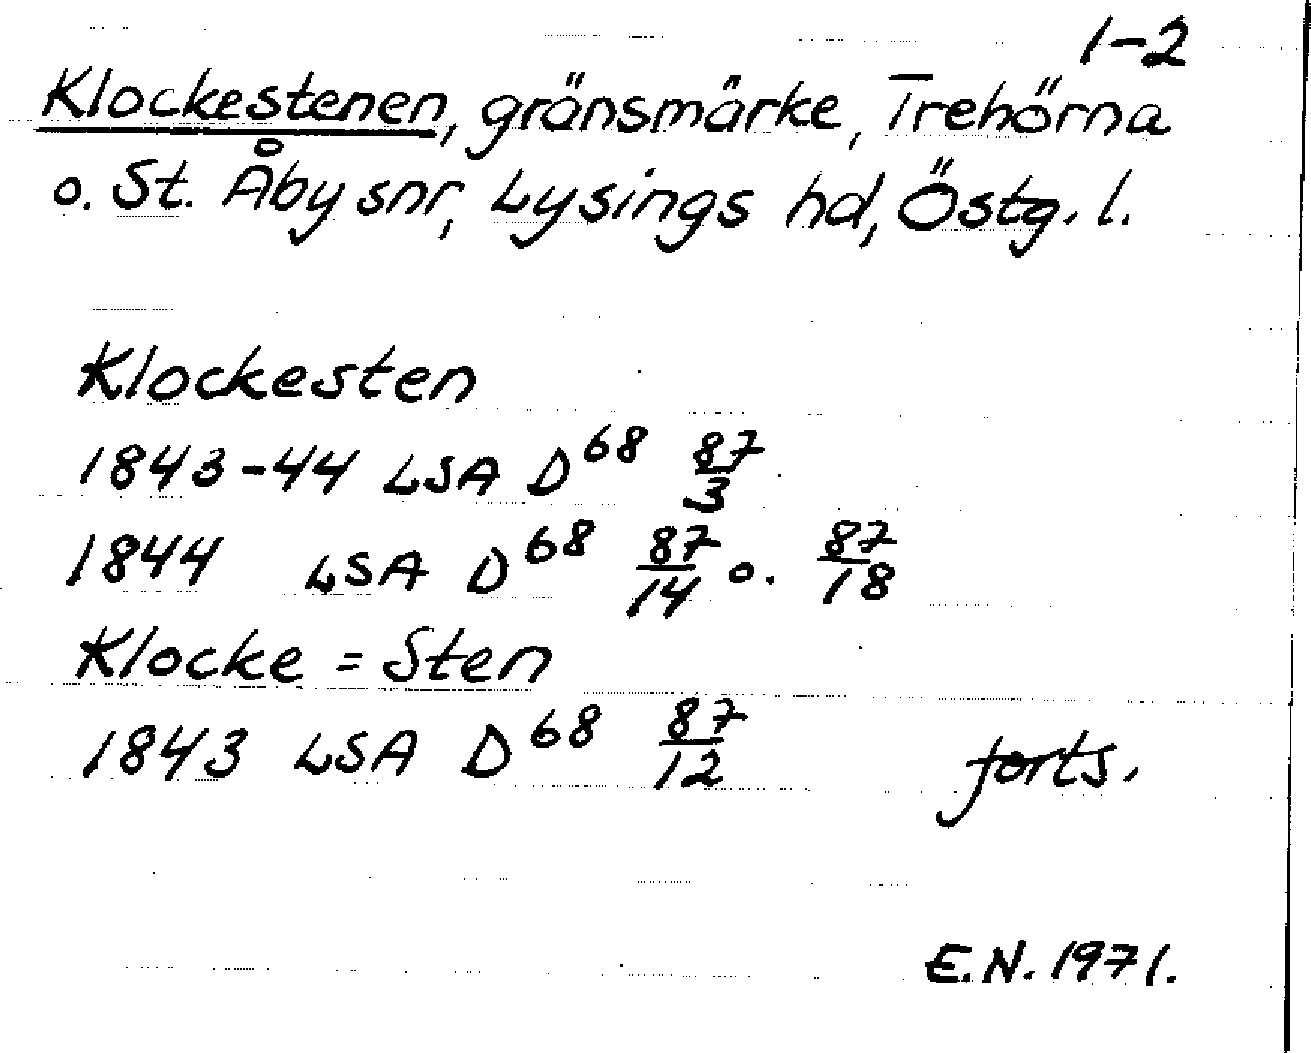 1-2
Klockestenen, gränsmärke, Trehörna
o. St. Åby snr, Lysings hd, Östg. l.
Klockesten
1843-44 LSA D⁶⁸ 87/3
1844 LSA D⁶⁸ 87/14 o. 87/18
Klocke = Sten
1843 LSA D⁶⁸ 87/12 forts.
E.N. 1971.